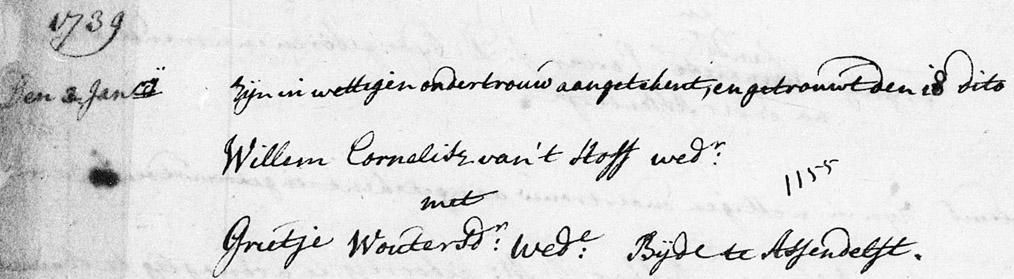 1739
Den 3 Janrij Zijn in wettigen ondertrouw aangetekent, en getrouwt den 18 dito
Willem Cornelisz van't Hoff wedr.
1155
met
Grietje Woutersdr. Wede. Bijde te Assendelft.